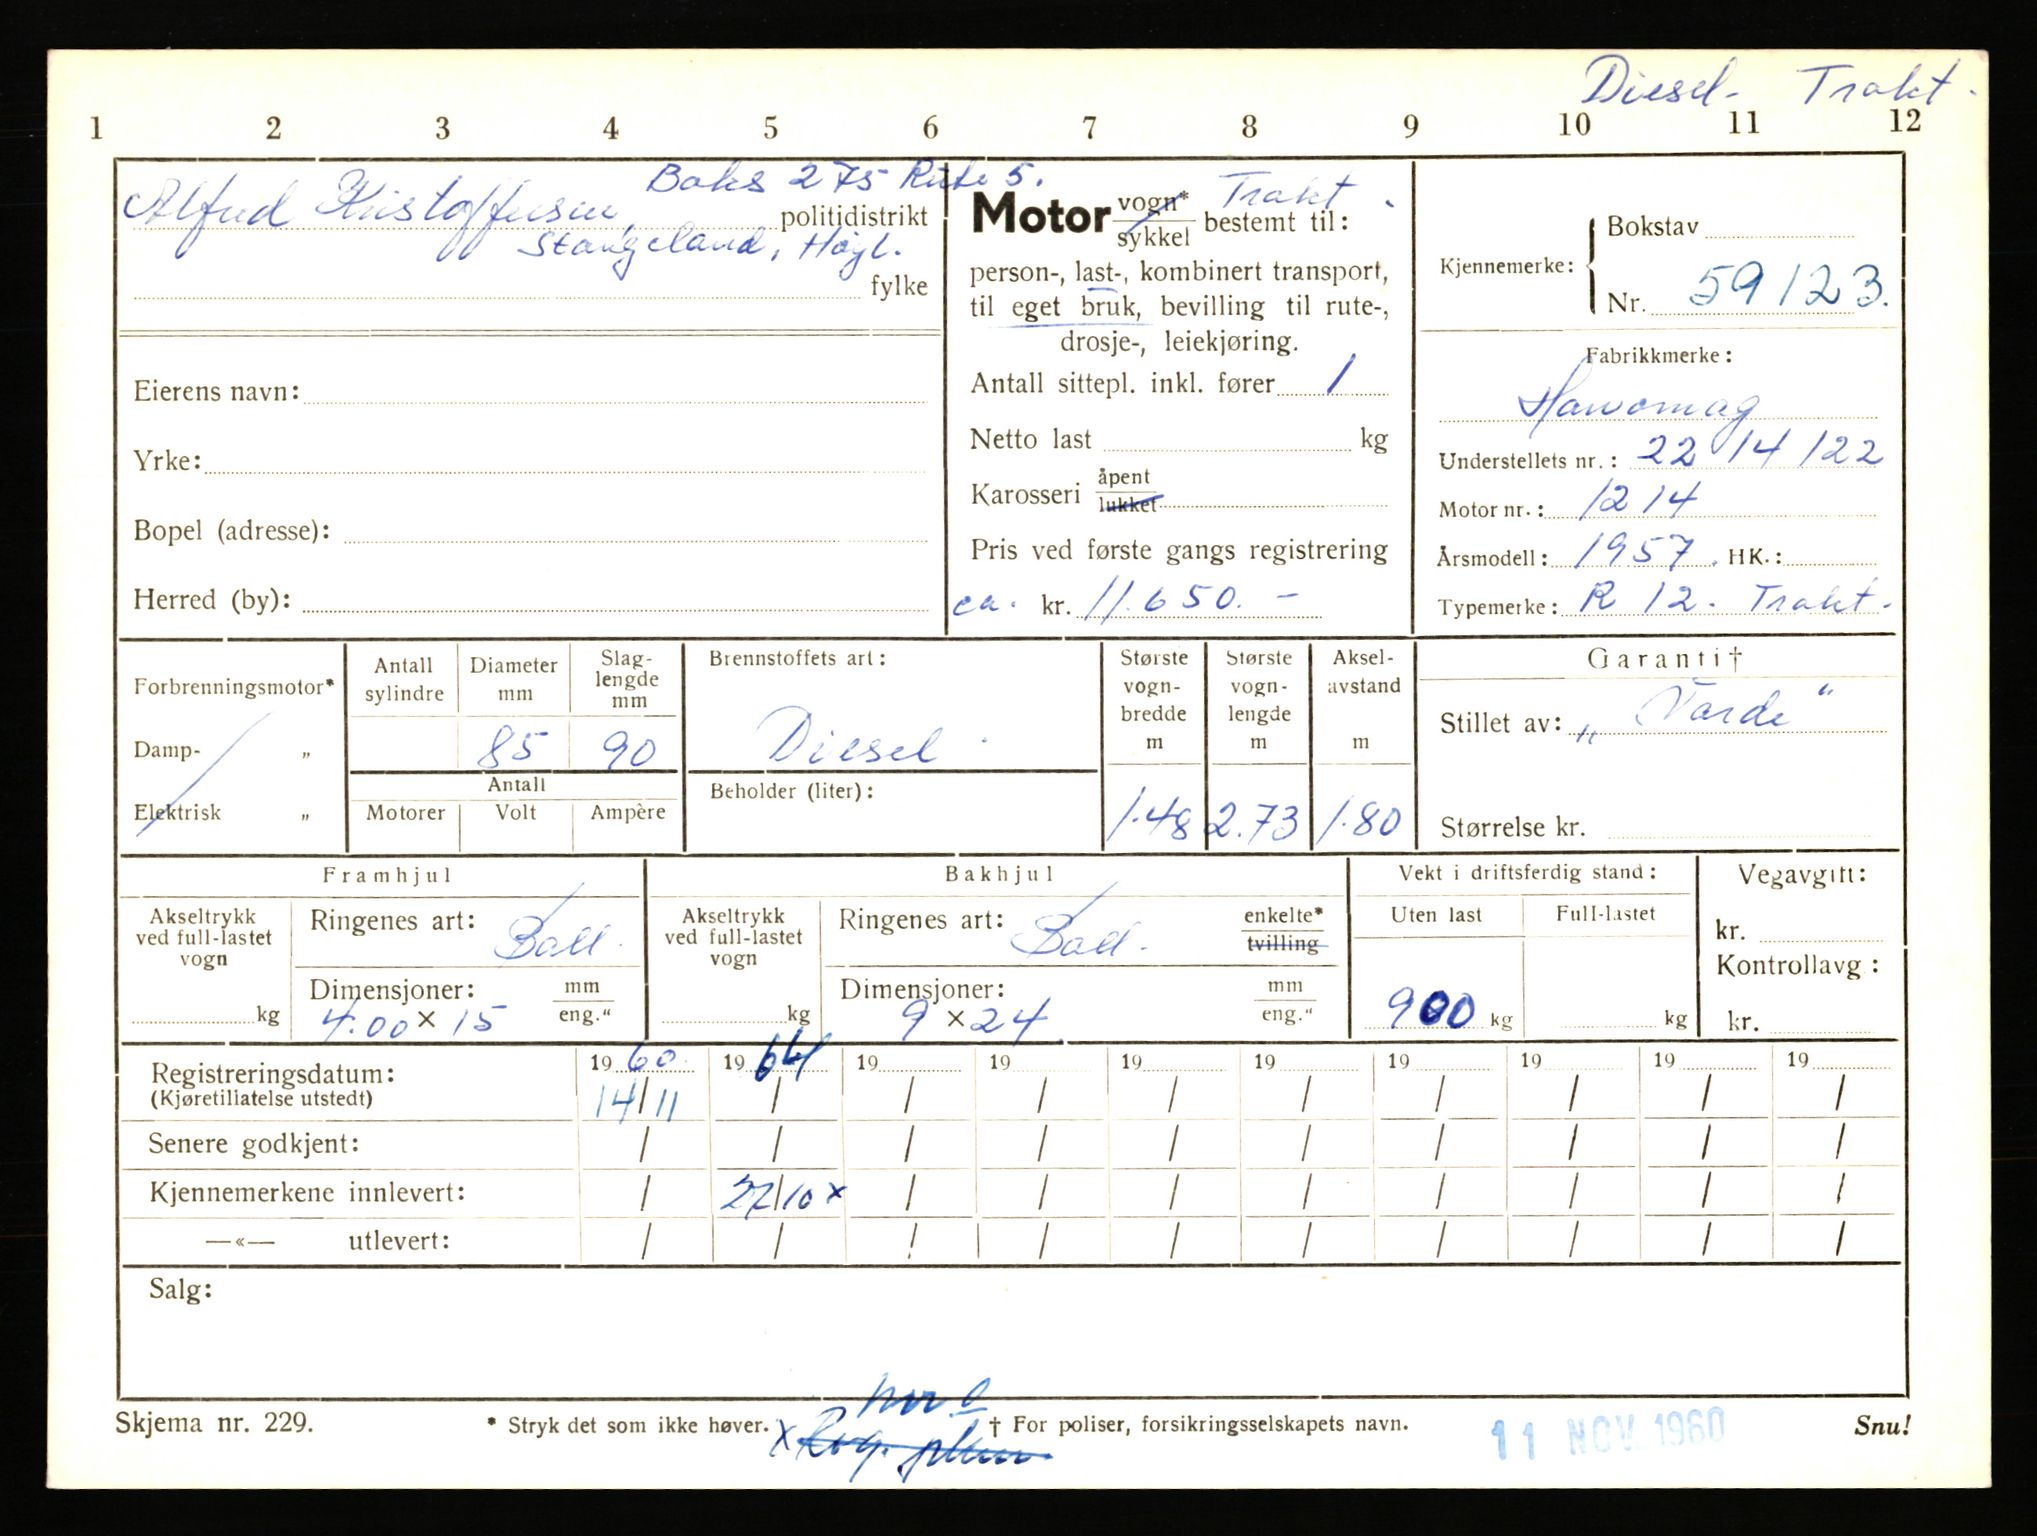 Diesel- Trakt.
1 2 3 4 5 6 7 8 9 10 11 12
Boks 275 Rute 5.
Alfred Kristoffersen politidistrikt
Stangeland, Høgl.
fylke
Eierens navn:
Yrke:
Bopel (adresse):
Herred (by):
Motor vogn* / sykkel bestemt til: Trakt.
person-, last-, kombinert transport,
til eget bruk, bevilling til rute-,
drosje-, leiekjøring.
Antall sittepl. inkl. fører 1
Netto last kg
Karosseri åpent / lukket
Pris ved første gangs registrering
ca. kr. 11.650.-
Kjennemerke: Bokstav
Nr. 59123.
Fabrikkmerke:
Hanomag
Understellets nr.: 22 14 122
Motor nr.: 1214
Årsmodell: 1957. HK.:
Typemerke: R 12. Trakt.
Forbrenningsmotor*
Damp- „
Elektrisk „
Antall sylindre
Diameter mm
85
Slag-lengde mm
90
Antall
Motorer Volt Ampère
Brennstoffets art:
Diesel.
Beholder (liter):
Største vogn-bredde m
1.48
Største vogn-lengde m
2.73
Aksel-avstand m
1.80
Garanti†
Stillet av: „Varde“
Størrelse kr.
Framhjul
Akseltrykk ved full-lastet vogn
kg
Ringenes art: Ball.
Dimensjoner: mm / eng.“
4.00 × 15
Bakhjul
Akseltrykk ved full-lastet vogn
kg
Ringenes art: Ball. enkelte* / tvilling
Dimensjoner: mm / eng.“
9 × 24
Vekt i driftsferdig stand:
Uten last Full-lastet
900 kg kg
Vegavgift:
kr.
Kontrollavg:
kr.
19 60 19 64 19 19 19 19 19 19 19 19
Registreringsdatum: 14/11 / / / / / / / / /
(Kjøretillatelse utstedt)
Senere godkjent: / / / / / / / / / /
Kjennemerkene innlevert: / 27/10 x / / / / / / / /
—«— utlevert: / / / / / / / / / /
Salg:
Skjema nr. 229.
* Stryk det som ikke høver.
x Reg.
† For poliser, forsikringsselskapets navn.
11 NOV 1960
Snu!